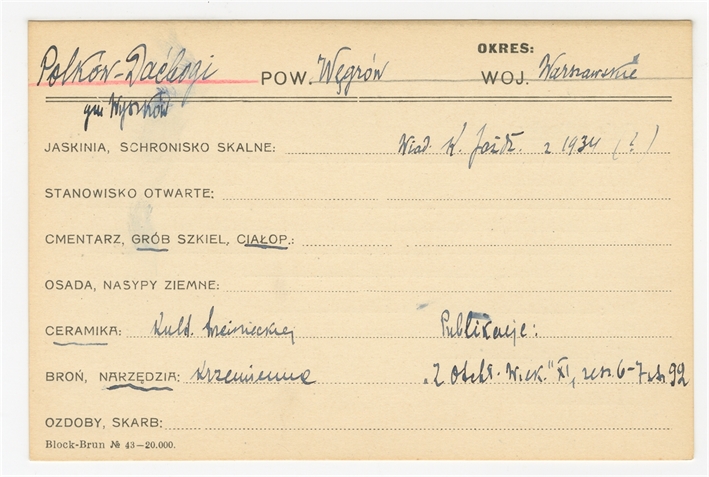 OKRES:
Polków-Daćbogi POW. Węgrów WOJ. Warszawskie
gm Wyszków
JASKINIA, SCHRONISKO SKALNE: Wiad. K. Jażdż. z 1934 (?)
STANOWISKO OTWARTE:
CMENTARZ, GRÓB SZKIEL, CIAŁOP.:
OSADA, NASYPY ZIEMNE:
CERAMIKA: Kult. trzcinieckiej Publikacje:
BROŃ, NARZĘDZIA: Krzemienne „Z Otchł. Wiek." XI, zesz. 6-7 str 92
OZDOBY, SKARB:
Block-Brun № 43—20.000.